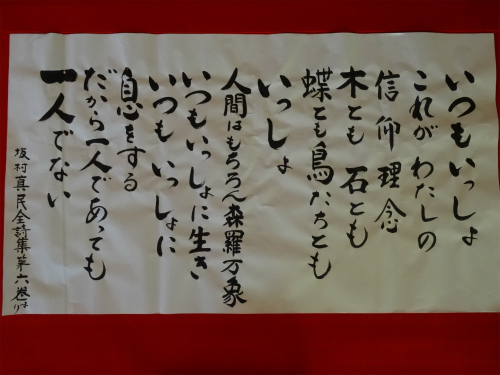 いつもいっしょ
これがわたしの
信仰理念
木とも石とも
蝶とも鳥たちとも
いっしょ
人間はもちろん森羅万象
いつもいっしょに生き
いつもいっしょに
息をする
だから一人であっても
一人でない
坂村真民全詩集第六巻より